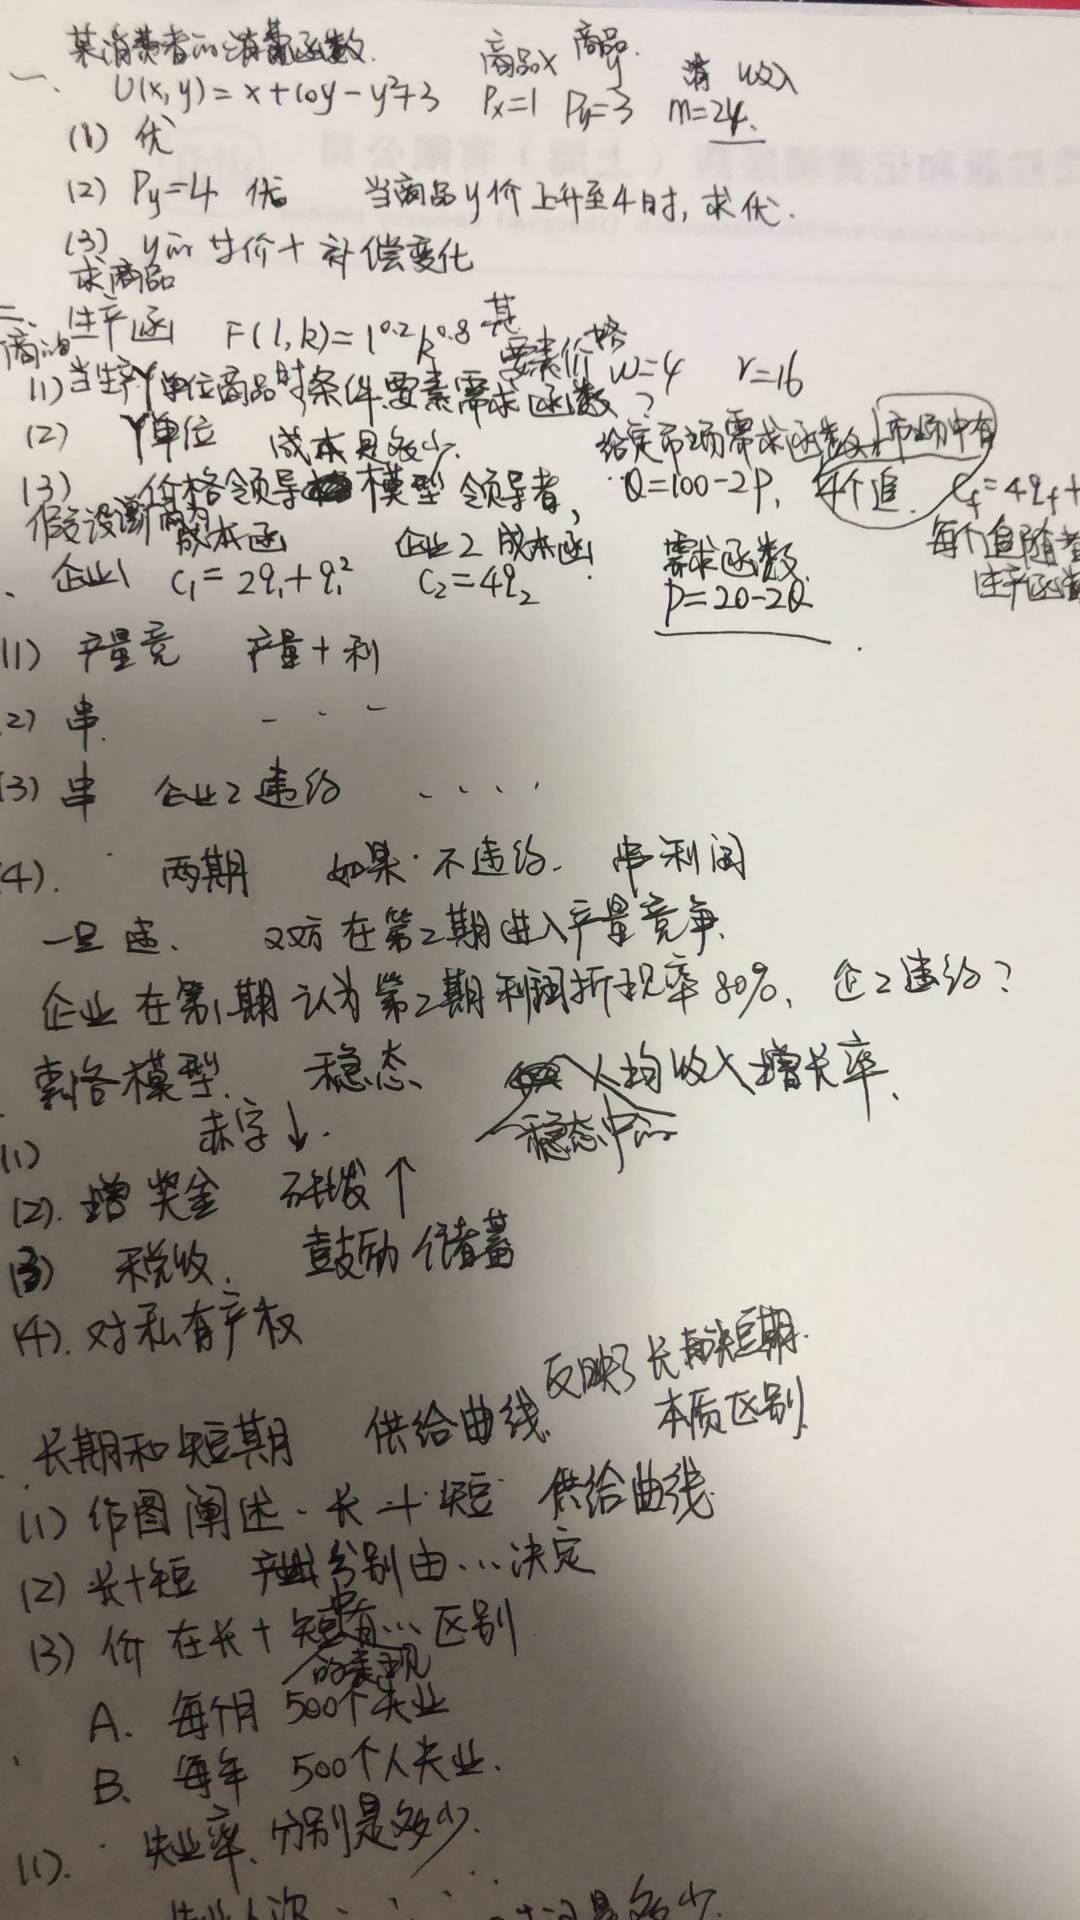 某消费者的消费函数 商品x 商品y 消 收入
一、 U(x,y)=x+10y-y²+3 Px=1 Py=3 m=24.
(1) 优
(2) Py=4 优 当商品y价上升至4时,求优.
(3) y的 甘价+补偿变化
求商品
二、生产函 F(l,k)=l^0.2 k^0.8 其要素价格 w=4 r=16
(1)当生产Y单位商品时条件要素需求函数?
(2) Y单位 成本是多少. 给定市场需求函数 市场中有
(3) 价格领导 模型 领导者, Q=100-2P, 4个追.
假设 成本函 企业2 成本函 需求函数 每个追随者
企业1 C₁=2q₁+q₁² C₂=4q₂ P=20-2Q 生产函数
(1) 产量竞 产量+利
(2) 串.
(3) 串 企业2违约 ....
(4). 两期 如果 不违约. 串利润
一旦违. 双方在第2期进入产量竞争.
企业在第1期认为第2期利润折现率80%, 企2违约?
索洛模型. 稳态 人均收入增长率.
稳态中的
(1) 赤字↓.
(2). 增奖金 研发↑
(3) 税收. 鼓励储蓄
(4). 对私有产权
反映了长期短期.
长期和短期 供给曲线. 本质区别
(1) 作图阐述. 长+短 供给曲线.
(2) 长+短 产出分别由...决定
(3) 价在长+短中有...区别
的表现
A. 每个月 500个失业
B. 每年 500个人失业.
(1). 失业率.分别是多少.
是多少.